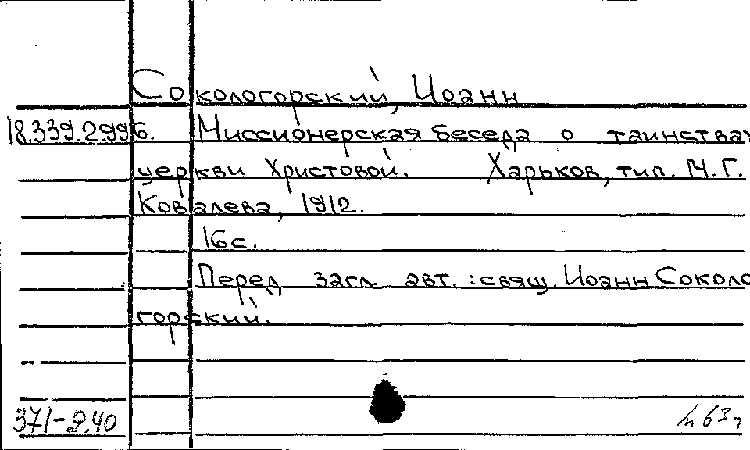 Сокологорский, Иоанн
18.339.2996. Миссионерская беседа о таинствах
церкви Христовой. Харьков, тип. М.Г.
Ковалева, 1912.
16с.
Перед загл. авт.: свящ. Иоанн Соколо
горский.
371-2.40